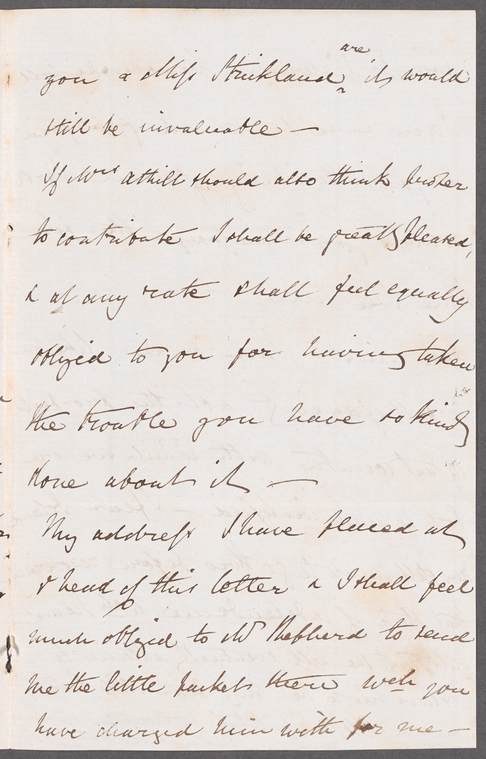 are
you & Miss Strickland ^ it would
still be invaluable —
If Mrs Athill should also think proper
to contribute I shall be greatly pleased,
& at any rate shall feel equally
obliged to you for having taken
the trouble you have so kindly
done about it —
My address I have placed at
head of this letter & I shall feel
much obliged to Mr Shepherd to send
me the little packets there wch you
have charged him with for me —